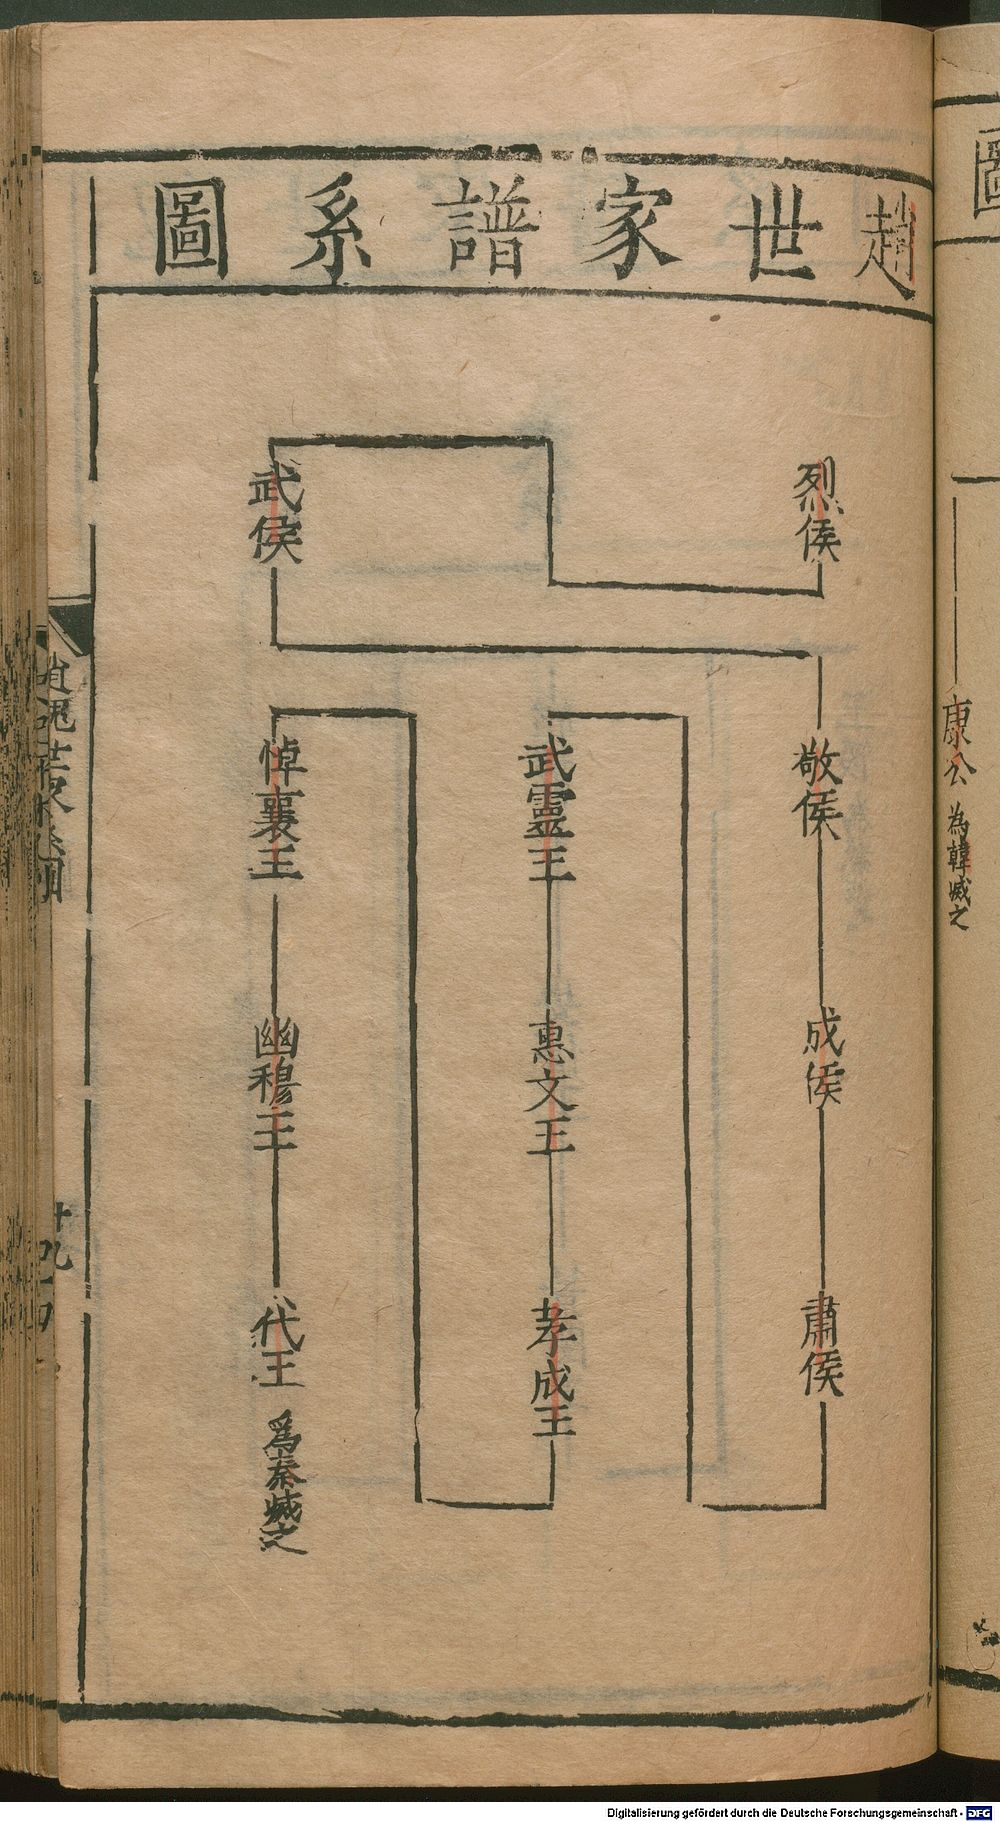 趙世家譜系圖
烈侯
武侯
敬侯
成侯
肅侯
武靈王
惠文王
孝成王
悼襄王
幽穆王
代王 爲秦滅之
康公 為韓滅之
圖
Digitalisierung gefördert durch die Deutsche Forschungsgemeinschaft - DFG